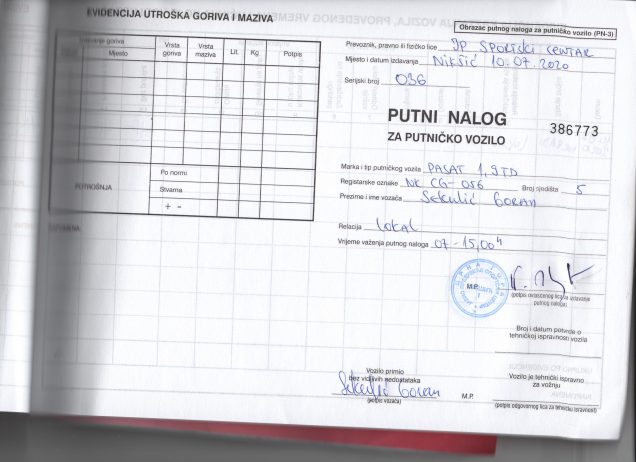 EVIDENCIJA UTROŠKA GORIVA I MAZIVA
goriva
Mjesto
Vrsta goriva
Vrsta maziva
Lit.
Kg
Potpis
POTROŠNJA
Po normi
Stvarna
+ -
Obrazac putnog naloga za putničko vozilo (PN-3)
Prevoznik, pravno ili fizičko lice JP SPORTSKI CENTAR
Mjesto i datum izdavanja Nikšić 10.07.2020
Serijski broj 036
PUTNI NALOG
ZA PUTNIČKO VOZILO
386773
Marka i tip putničkog vozila PASAT 1,9 TD
Registarske oznake NK CG-056 Broj sjedišta 5
Prezime i ime vozača Sekulić Goran
Relacija Lokal
Vrijeme važenja putnog naloga 07-15,00 h
M.P.
(potpis ovlašćenog lica za izdavanje
putnog naloga)
Broj i datum potvrde o
tehničkoj ispravnosti vozila
Vozilo primio
bez vidljivih nedostataka
Sekulić Goran
(potpis vozača)
M.P.
Vozilo je tehnički ispravno
za vožnju
(potpis odgovornog lica za tehničku ispravnost)